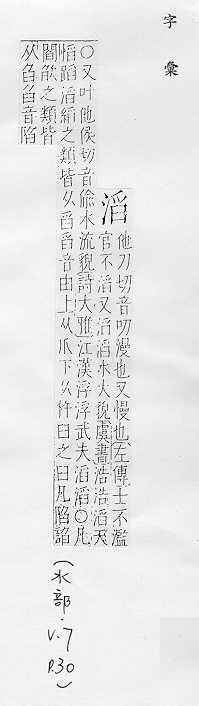 字彙
滔
他刀切音叨漫也又慢也左傳士不濫
官不滔又滔滔水大貌虞書浩浩滔天
〇又叶他侯切音偷水流貌詩大雅江漢浮浮武夫滔滔〇凡
慆蹈滔縚之類皆从舀舀音由上从爪下从杵臼之臼凡陷諂
閻歛之類皆
从臽臽音陷
(水部.
V.7
P.30)